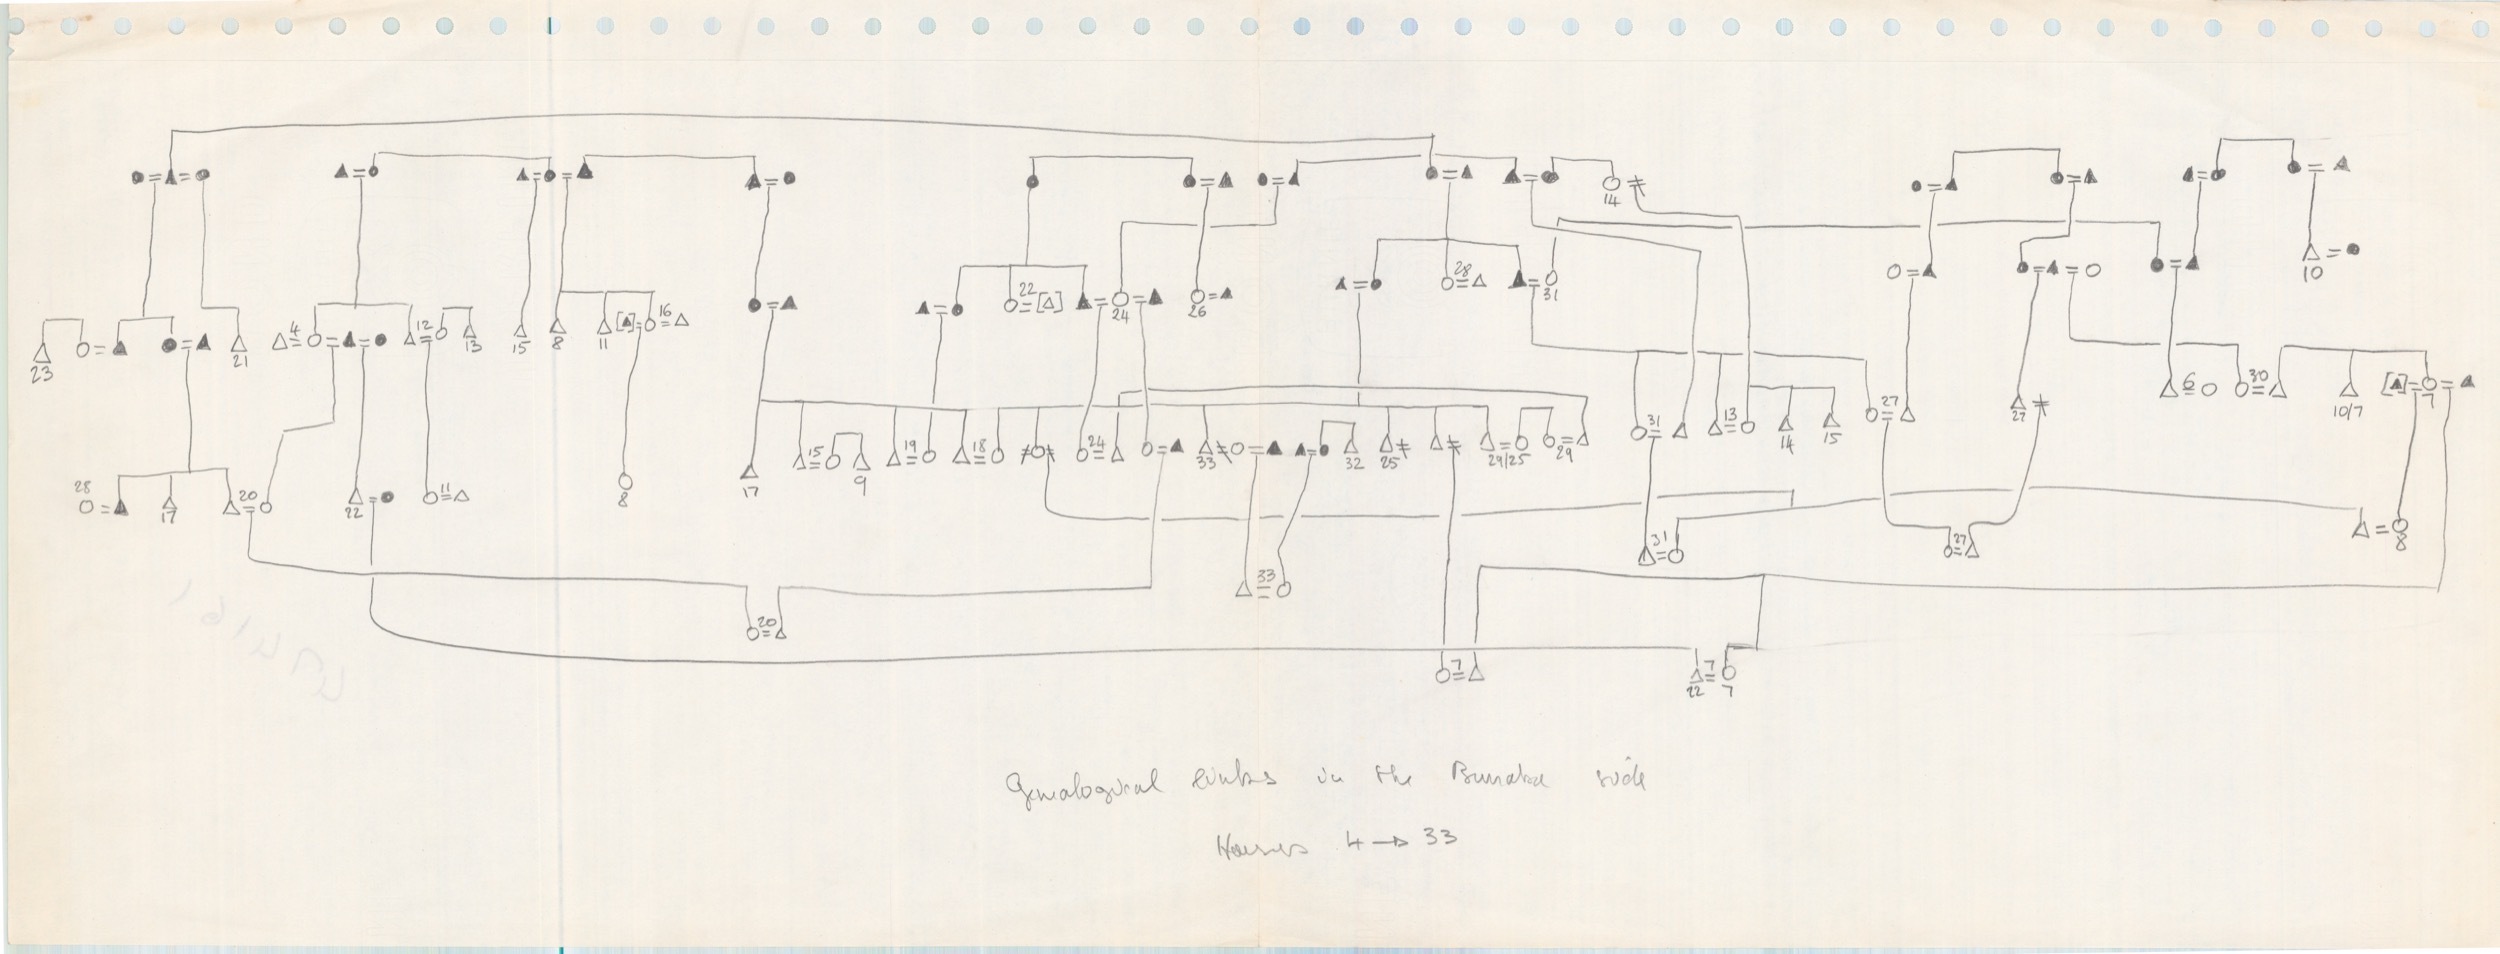 14
28
31
10
22
24
26
16
4
12
13
15
8
11
21
23
6
30
10/7
7
27
22
31
13
14
15
15
9
19
18
24
33
32
25
29/25
29
28
17
20
22
11
8
17
31
27
8
33
20
7
7
22
7
Genealogical links in the side
Houses 4 → 33